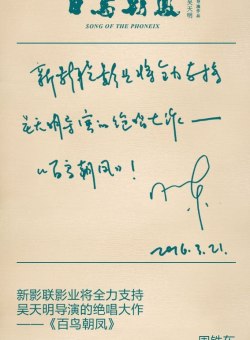 百鸟朝凤
吴天明
SONG OF THE PHONEIX
新影联影业将全力支持
吴天明导演的绝唱大作——
《百鸟朝凤》!
2016.3.21.
新影联影业将全力支持
吴天明导演的绝唱大作
——《百鸟朝凤》
周铁东